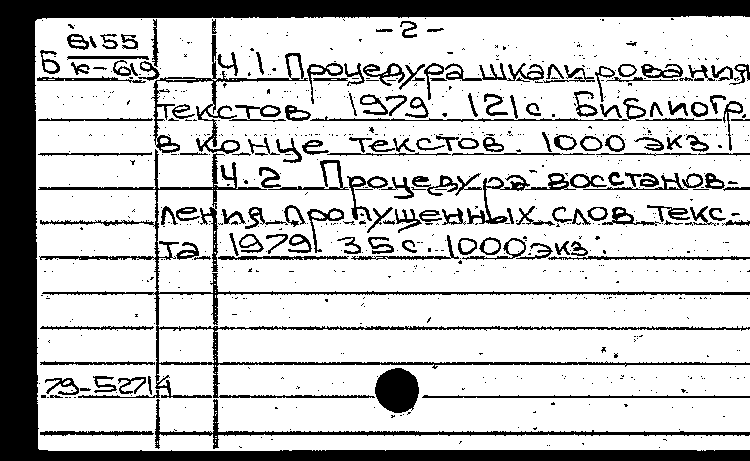 -2-
8155
Б К-619
Ч.1. Процедура шкалирования
текстов. 1979. 121с. Библиогр.
в конце текстов. 1000 экз.
Ч.2 Процедура восстанов-
ления пропущенных слов текс-
та 1979. 35с. 1000 экз.
79-52714